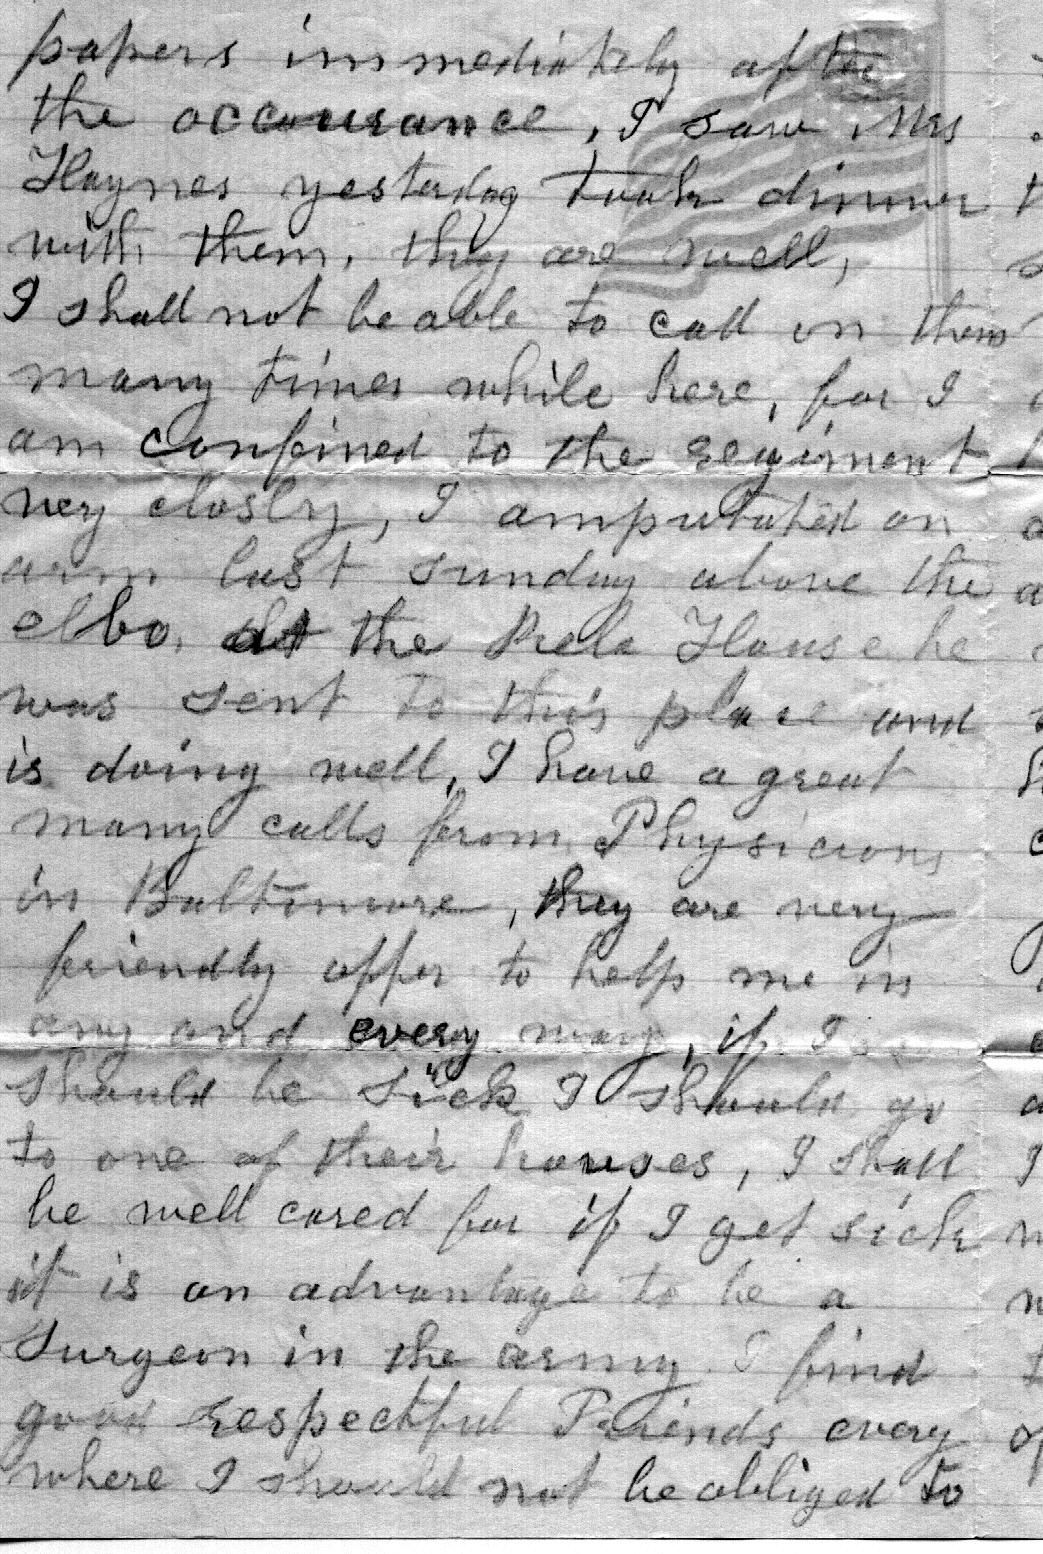 papers immediately after
the occourance, I saw Mrs
Haynes yesterday took dinner
with them, they are well,
I shall not be able to call on them
many times while here, for I
am confined to the regiment
very closly, I amputated an
arm last sunday above the
elbo, at the Rela House he
was sent to this place and
is doing well, I have a great
many calls from Physicians
in Baltimore, they are very
friendly offer to help me in
any and every way, if I
should be sick I should go
to one of their houses, I shall
be well cared for if I get sick
it is an advantage to be a
Surgeon in the army I find
good respectful Friends every
where I should not be obliged to